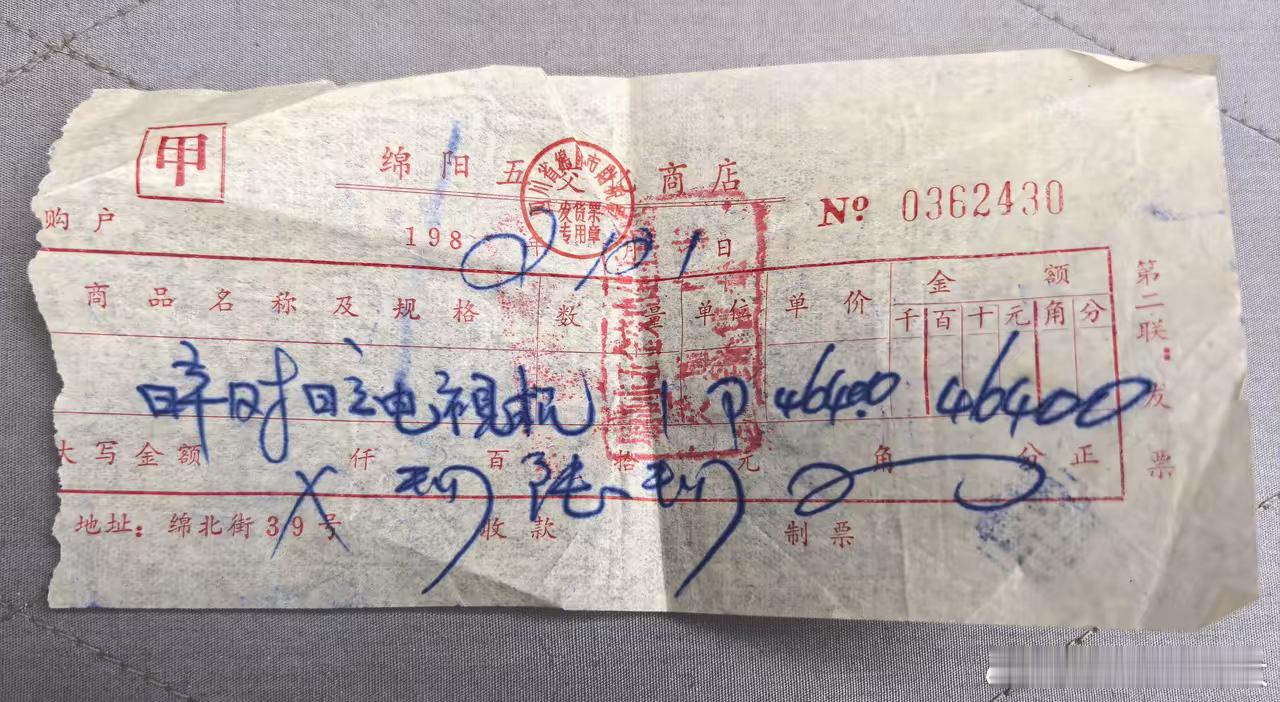 甲
绵阳五交 商店
No 0362430
购户
1982年10月1日
商品名称及规格 数量 单位 单价 金额
千 百 十 元 角 分
电视机 1 464.00 46400
大写金额 仟 百 拾 元 角 分 正
X 肆 陆 肆
地址: 绵北街39号 收款 制票
第二联: 发票
发货票
专用章